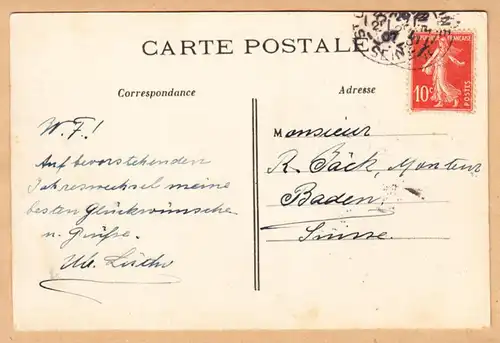 CARTE POSTALE
Correspondance
Adresse
RÉPUBLIQUE FRANÇAISE
10c
POSTES
W. F.!
Auf bevorstehenden
Jahreswechsel meine
besten Glückwünsche
u. Grüße.
Monsieur
R. Bäck, Monteur
Baden
Suisse.